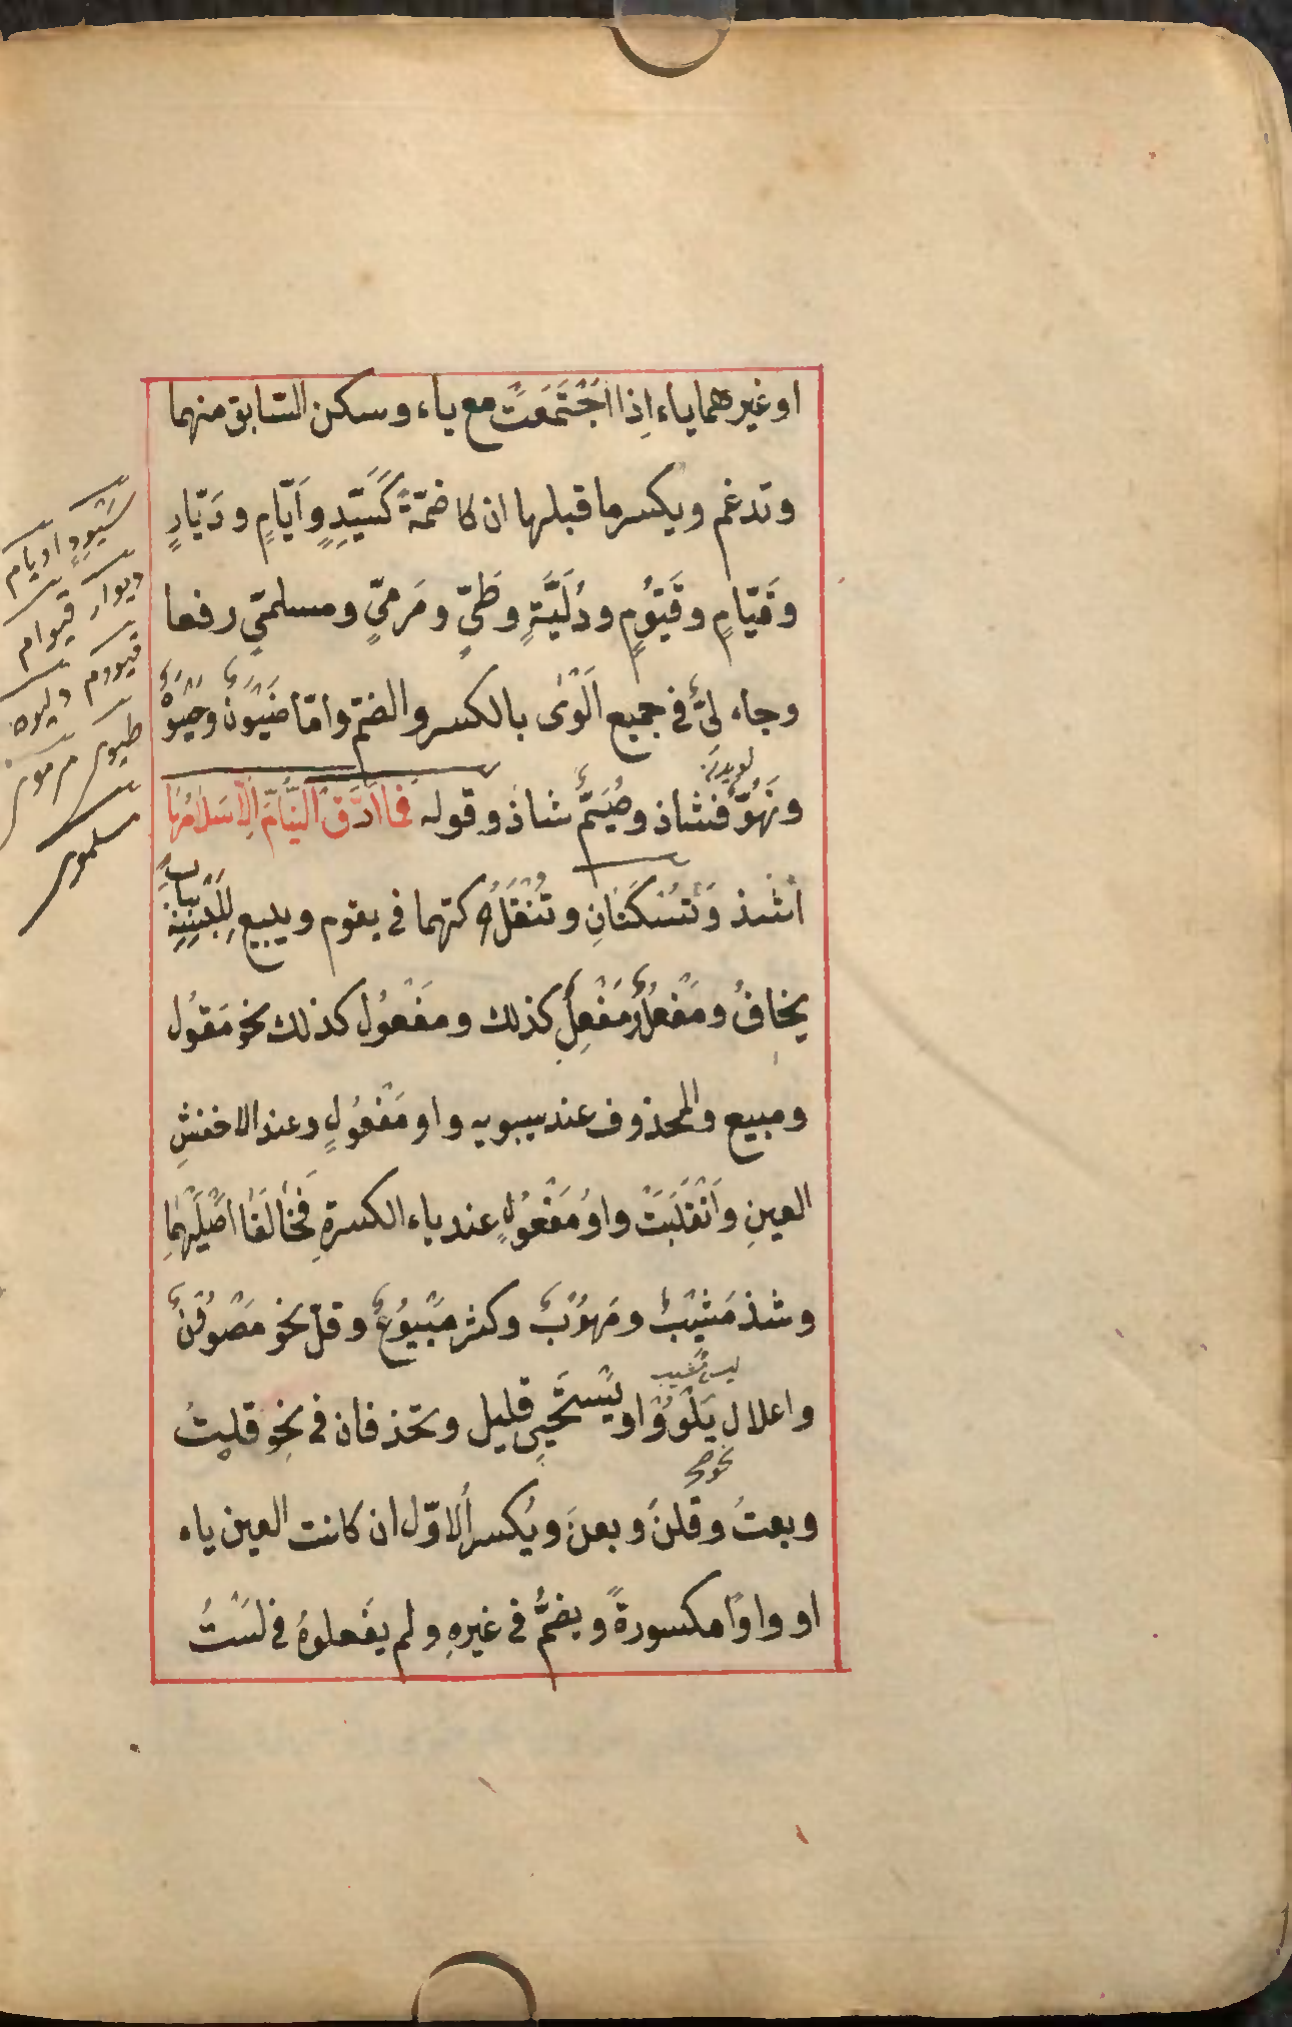 او غيرهما ياء اِذا اجْتَمَعَتْ مع ياء وسكن السّابق منهما
وتدغم ويكسر ما قبلها ان كا ضمّةً كَسَيّدٍ واَيّامٍ ودَيّارٍ
وقَيّامٍ وقَيّوُمٍ ودُلَيَّةٍ وطَيّ ومَرميٍّ ومسلميّ رفعا
وجاء ليٌّ في جميع اَلْوٰى بالكسر والضمّ وامّا ضَيْوَنٌ وحَيْوَةٌ
ونَهُوٌّ فشاذ وصُيَّمٌ شاذ وقوله فما اَرَّقَ النُيَّامَ اِلّا سَلامُها
اشذ وَتُسَكَّنانِ وتُنْقَلُ كتهما في يقوم ويبيع لِلَبْسِهِ بباب
يخافُ ومَفْعُلٌ ومَفْعِلٌ كذلك ومَفْعُولٌ كذلك نحو مَقوُل
ومبيع والمحذوف عند سيبويه واو مَفْعُولٍ وعند الاخفشِ
العينِ وَانْقَلَبَتْ واوُ مَفْعُولٍ عند ياء الكسرةِ فَخٰالَفٰا اصْلَيْهِمٰا
وشذ مَشيْبٌ ومَهوُبٌ وكثر مَبْيوُعٌ وقلّ نحو مَصْوُونٌ
واعلال يَلْوُوْا ويَسْتَحْيِي قليل وتحذفان في نحو قلتُ
وبعتُ وقلنَ وبعنَ ويُكسر اُلاوّل ان كانت العين ياء
او واوًا مكسورةً ويضمُّ في غيرهِ ولم يفعلوهُ في لَسْتُ
سَيْوِدٍ ايوام
ديوار قيوام
قيووم دليوة
طيوى مرموى
مسلموى